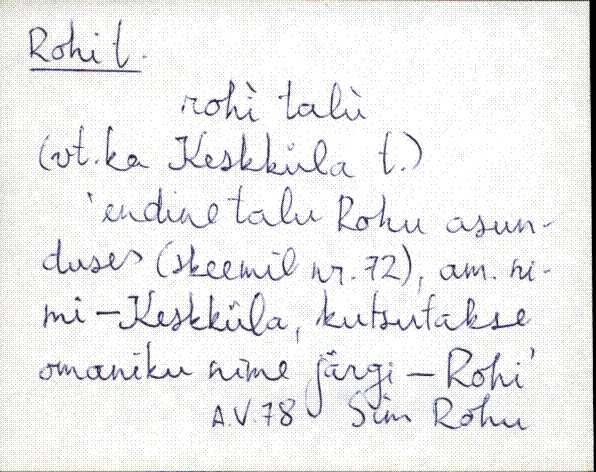 Rohi t.
rohì talù
(vt. ka Keskküla t.)
'endine talu Rohu asun-
duses (skeemil nr. 72), am. ni-
mi - Keskküla, kutsutakse
omaniku nime järgi - Rohi'
A.V. 78 Sim Rohu